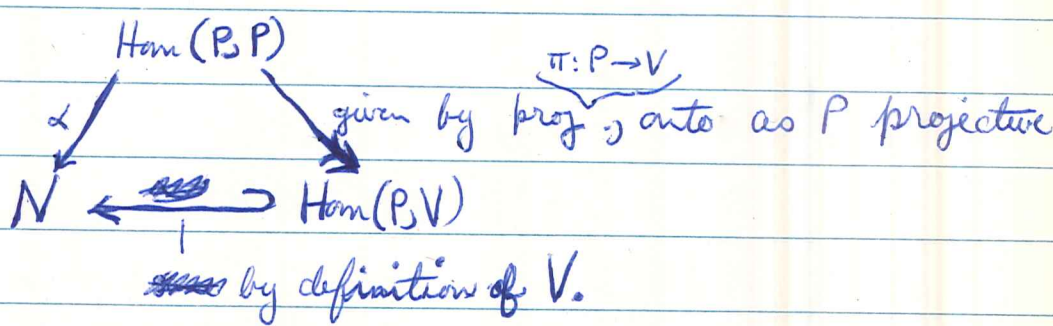 Hom (P, P)
π: P → V
α given by proj, onto as P projective
N ← Hom (P, V)
by definition of V.